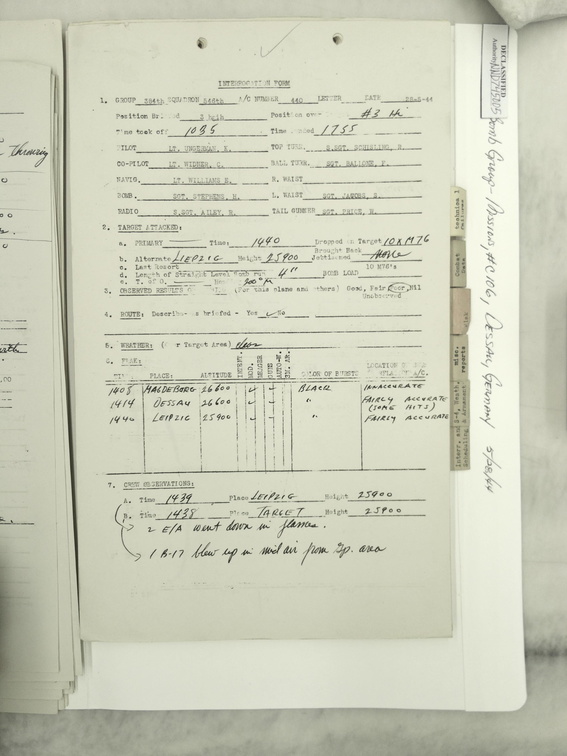 INTERROGATION FORM
1. GROUP 384th SQUADRON 546th A/C NUMBER 440 LETTER DATE 28-5-44
Position Position over #3 
Time took off 1035 Time 1755
PILOT LT. TOP TURR. S.SGT.
CO-PILOT LT. BALL TURR. SGT. MALLONE, F.
NAVIG. LT. WILLIAMS R. WAIST
BOMB. SGT. STEPHENS, L. WAIST SGT. JACOBS,
RADIO S.SGT. AILEY, R. TAIL GUNNER SGT.
2. TARGET ATTACKED:
a. PRIMARY Time: 1440 Dropped on Target 10XM76
Brought Back
b. Alternate LEIPZIG Height 25900 Jettisoned
c. Last Resort 10 M76's
d. Length of Straight Level Bomb run 4" BOMB LOAD
e. T. of O. 200° M
3. OBSERVED RESULTS OF (For this plane and others) Good, Fair Poor, Nil
Unobserved
4. ROUTE: as briefed - Yes ✓ No
5. WEATHER: (Over Target Area) Clear
6. FLAK:
PLACE: ALTITUDE INTENSE. MOD. MEAGER GUNS COLOR OF BURSTS LOCATION
1408 MAGDEBURG 26600 ✓ ✓ BLACK INACCURATE
1414 DESSAU 26600 ✓ ✓ " FAIRLY ACCURATE
(SOME HITS)
1440 LEIPZIG 25900 ✓ ✓ " FAIRLY ACCURATE
7. CREW OBSERVATIONS:
A. Time 1439 Place LEIPZIG Height 25900
B. Time 1438 Place TARGET Height 25900
2 E/A went down in flames.
1 B-17 blew up in mid air from Gp. area
Throwing
DECLASSIFIED
Authority NND745005
Bomb Group - Mission #C106, Dessau, Germany 5/28/44
technical
failures
Combat
Data
Misc.
reports
Interr. and S-4, Weath.
Scheduling & Armament